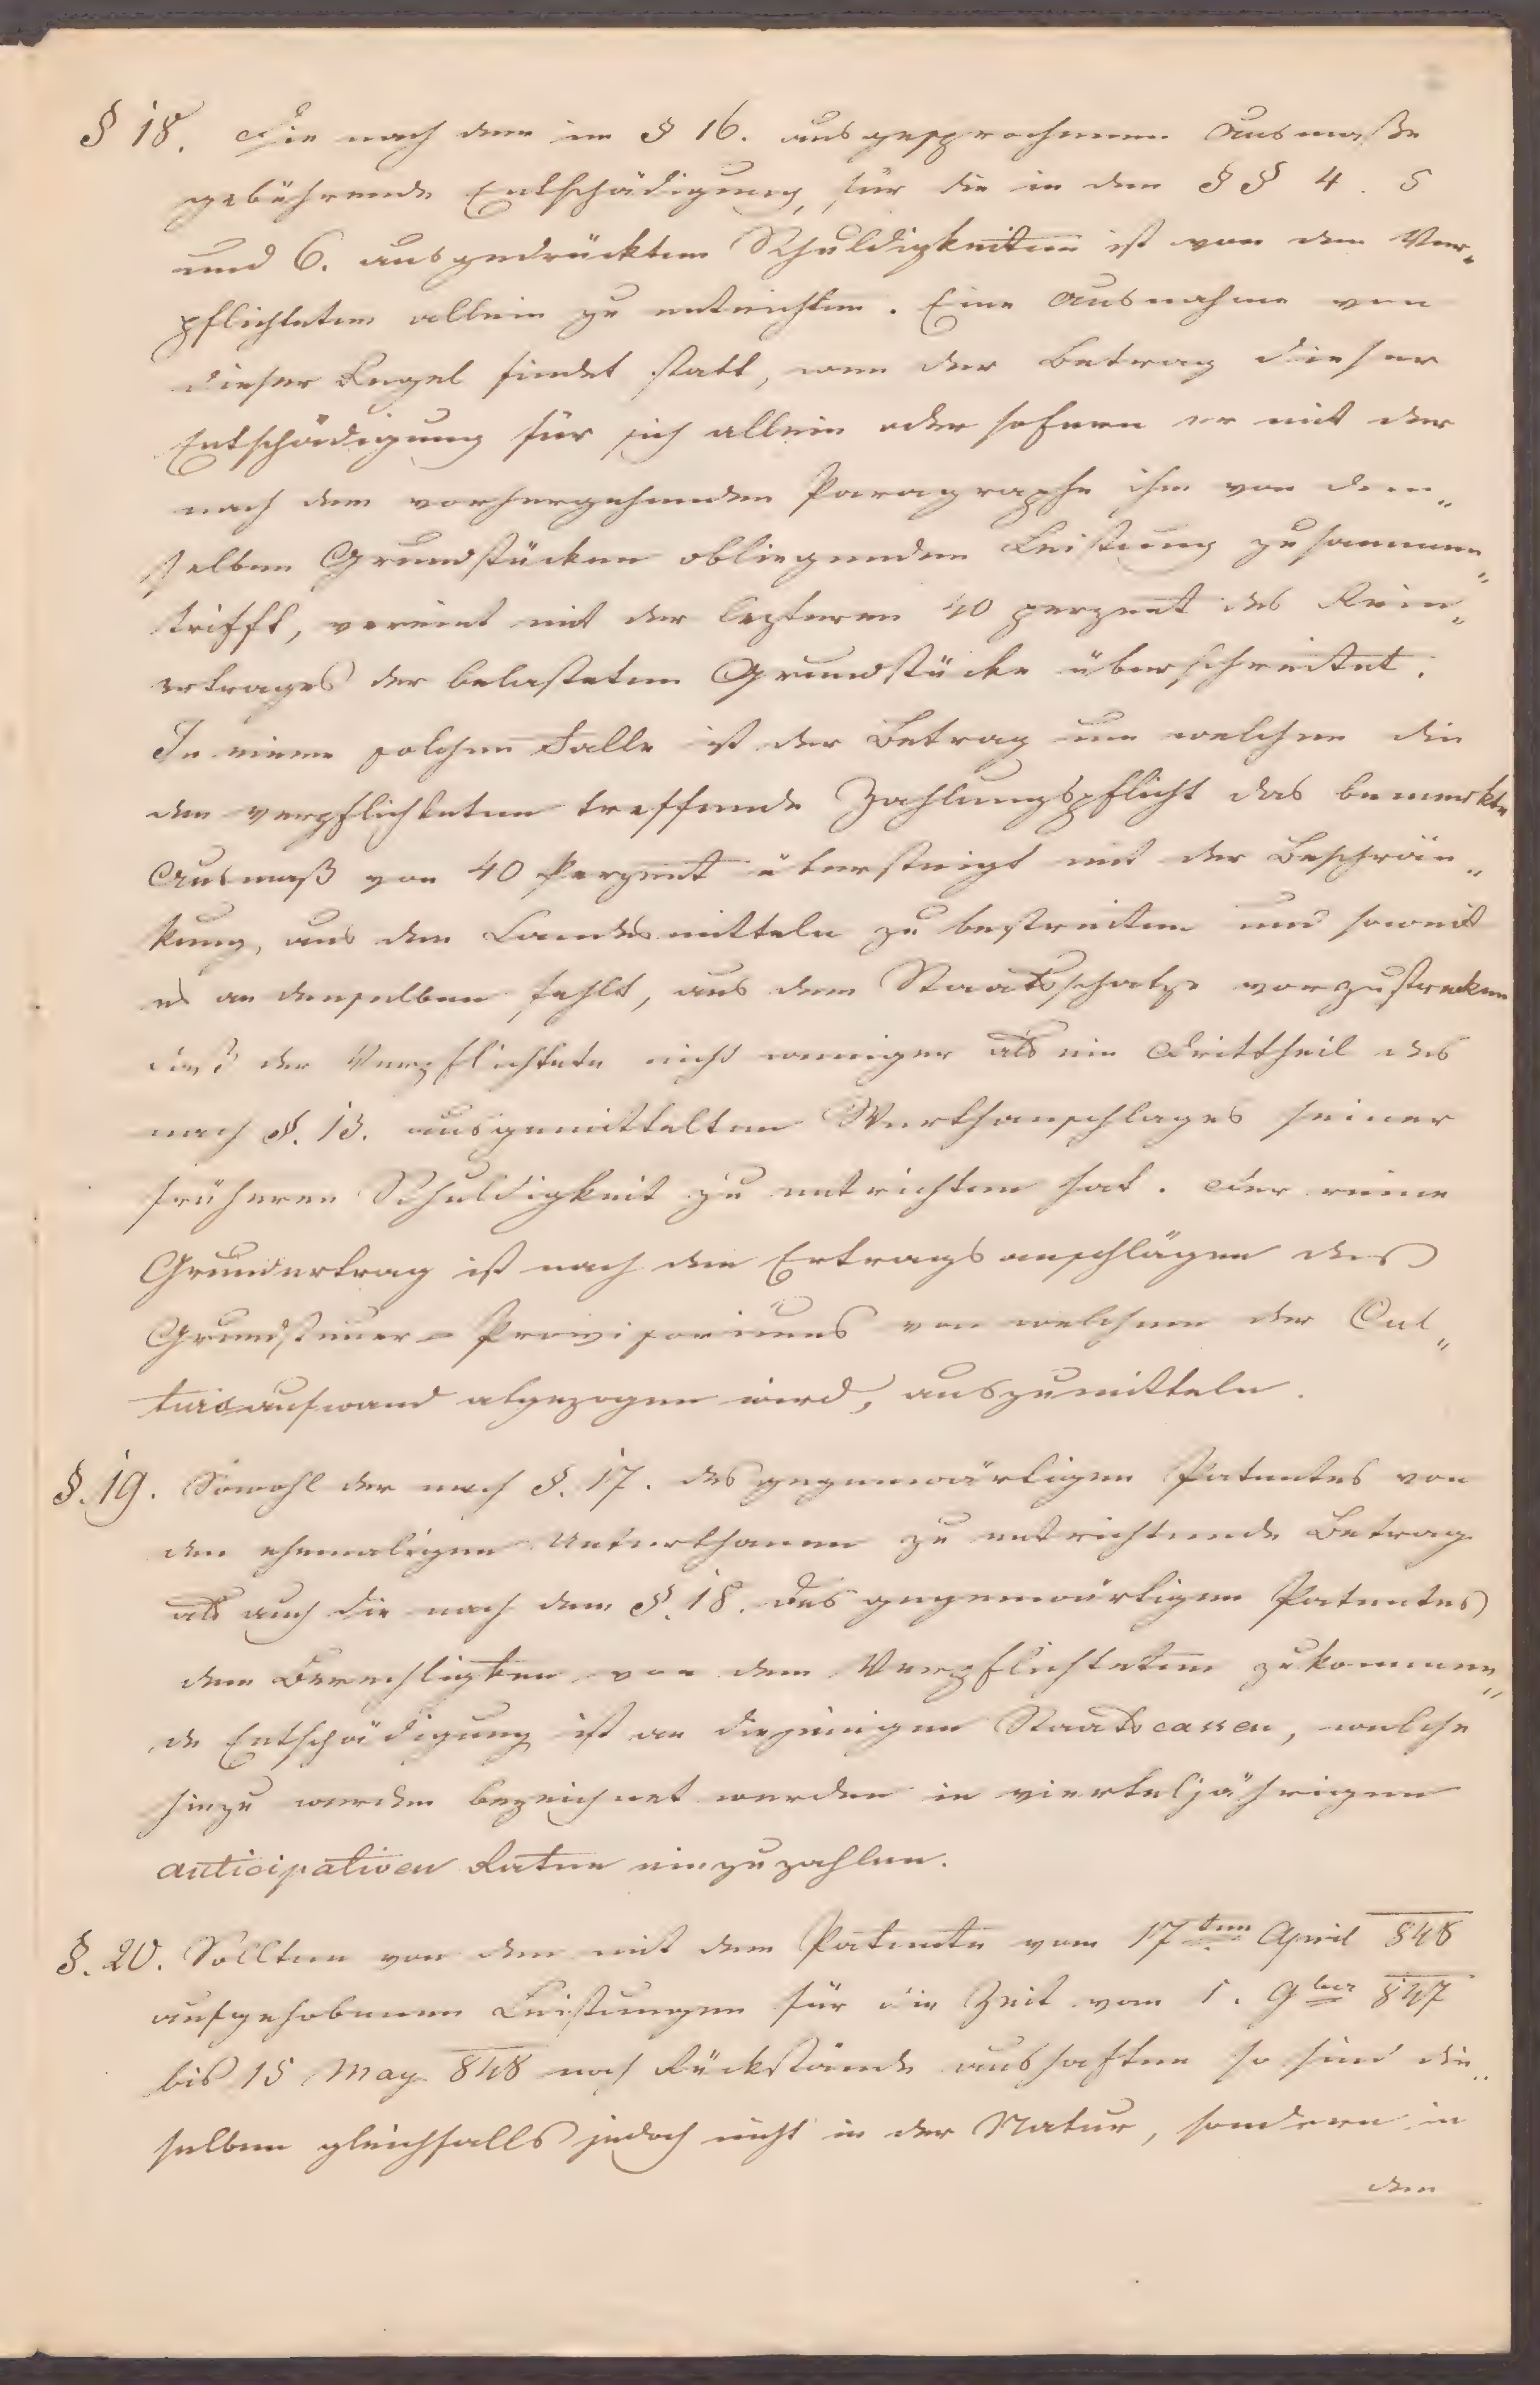 § 18. Die nach dem im § 16. ausgesprochenen Ausmaße
gebührende Entschädigung, für die in den §§ 4. 5
und 6. ausgedrückten Schuldigkeiten ist von dem Ver„
pflichteten allein zu entrichten. Eine Ausnahme von
dieser Regel findet statt, wen der Betrag dieser
Entschädigung für sich allein oder sofern er mit der
nach dem vorhergehenden Paragraphe ihm von den„
selben Grundstücken obliegenden Leistung zusammen„
trifft, vereint mit der lezteren 40 perzent des Rein„
ertrages der belasteten Grundstücke überschreitet.
In einem solchen Falle ist der Betrag um welchen die
den verpflichteten treffende Zahlungspflicht das bemerkte
Ausmaß von 40 Perzent übersteigt mit der Beschrän„
kung, aus den Landesmitteln zu bestreiten und soweit
es an denselben fehlt, aus dem Staatsschatze vorzustrecken
daß der Verpflichtete nicht weniger als ein Drittheil des
nach §. 13. ausgemittelten Werthanschlages seiner
früheren Schuldigkeit zu entrichten hat. Der reine
Grundertrag ist nach den Ertragsanschlägen des
Grundsteuer-Provisoriums von welchem der Cul„
turaufwand abgezogen wird, auszumitteln.
§. 19. Sowohl der nach §. 17. des gegenwärtigen Patentes von
den ehemaligen Unterthanen zu entrichtende Betrag
als auch die nach dem §. 18. des gegenwärtigen Patentes
dem Berechtigten von dem Verpflichteten zukommen„
de Entschädigung ist an diejenigen Staatscassen, welche
hiezu werden bezeichnet werden in vierteljährigen
anticipativen Raten einzuzahlen.
§. 20. Sollten von den mit dem Patente vom 17ten April 848
aufgehobenen Leistungen für die Zeit vom 1. 9ber 847
bis 15 May 848 noch Rückstände aushaften so sind die„
selben gleichfalls jedoch nicht in der Natur, sondern in
den